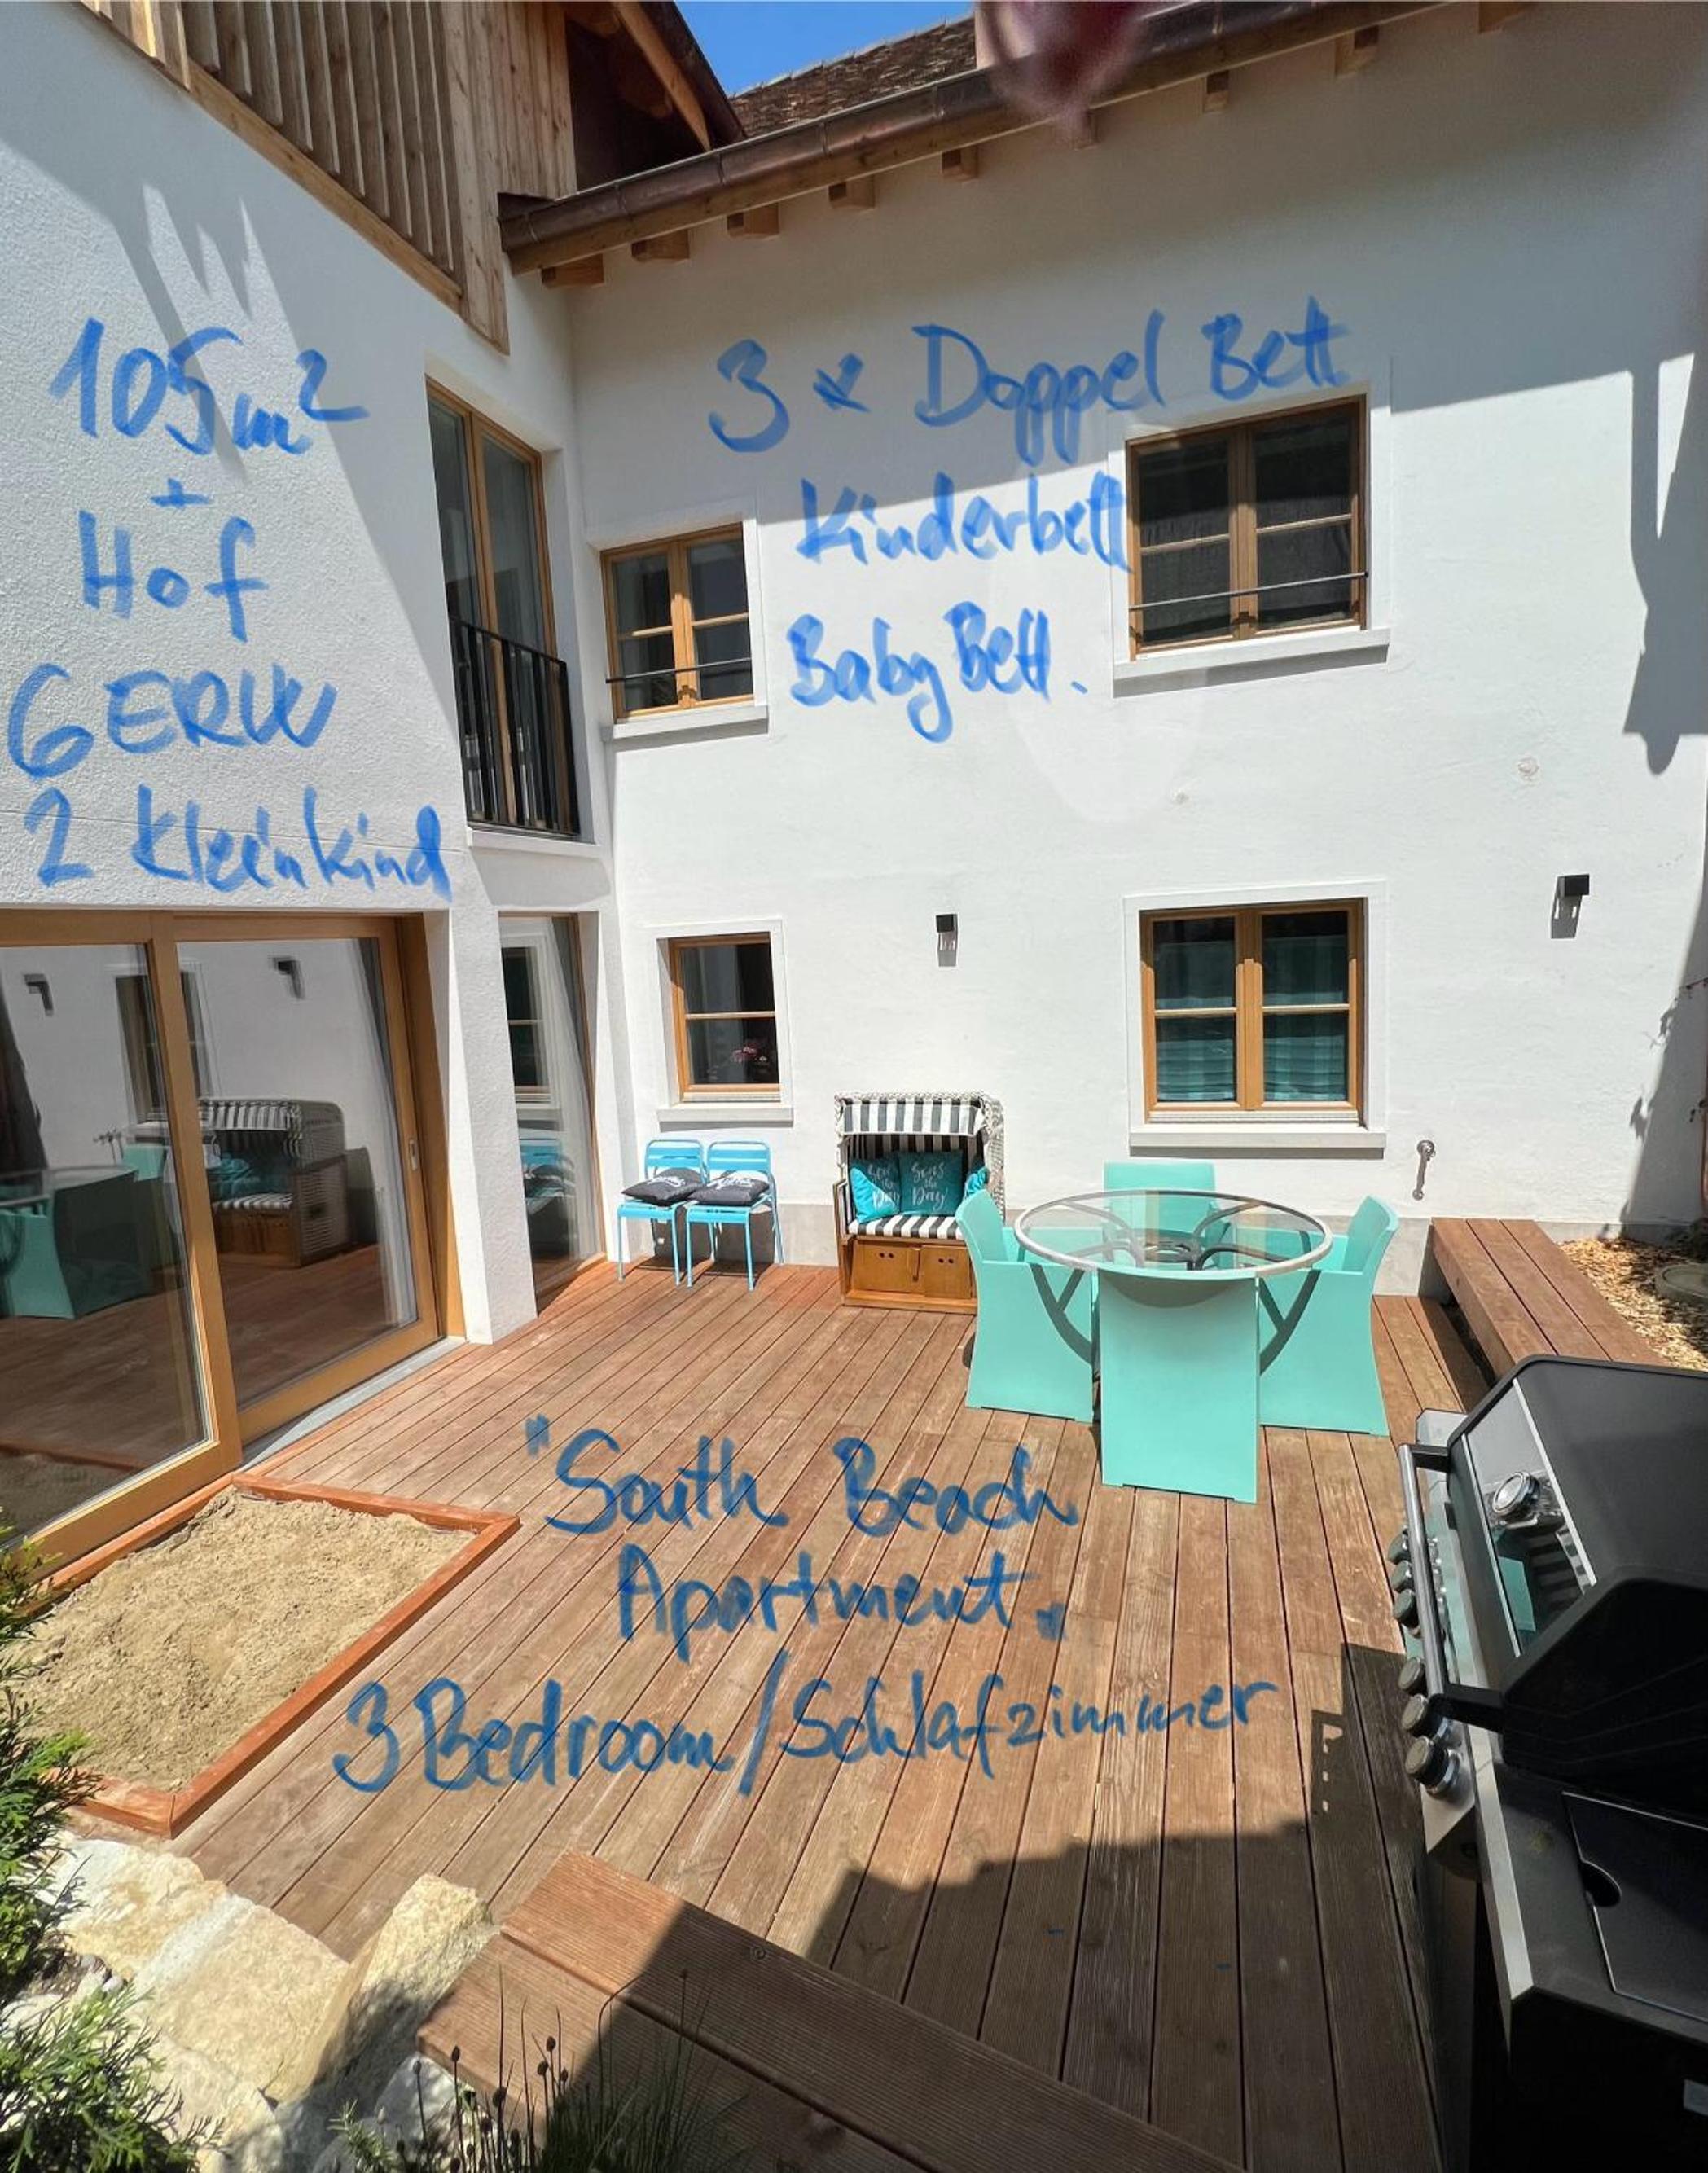 105m²
+
Hof
6 ERW
2 Kleinkind
3 x Doppel Bett
Kinderbett
Baby Bett.
Seas the Day
"South Beach
Apartment"
3 Bedroom/Schlafzimmer